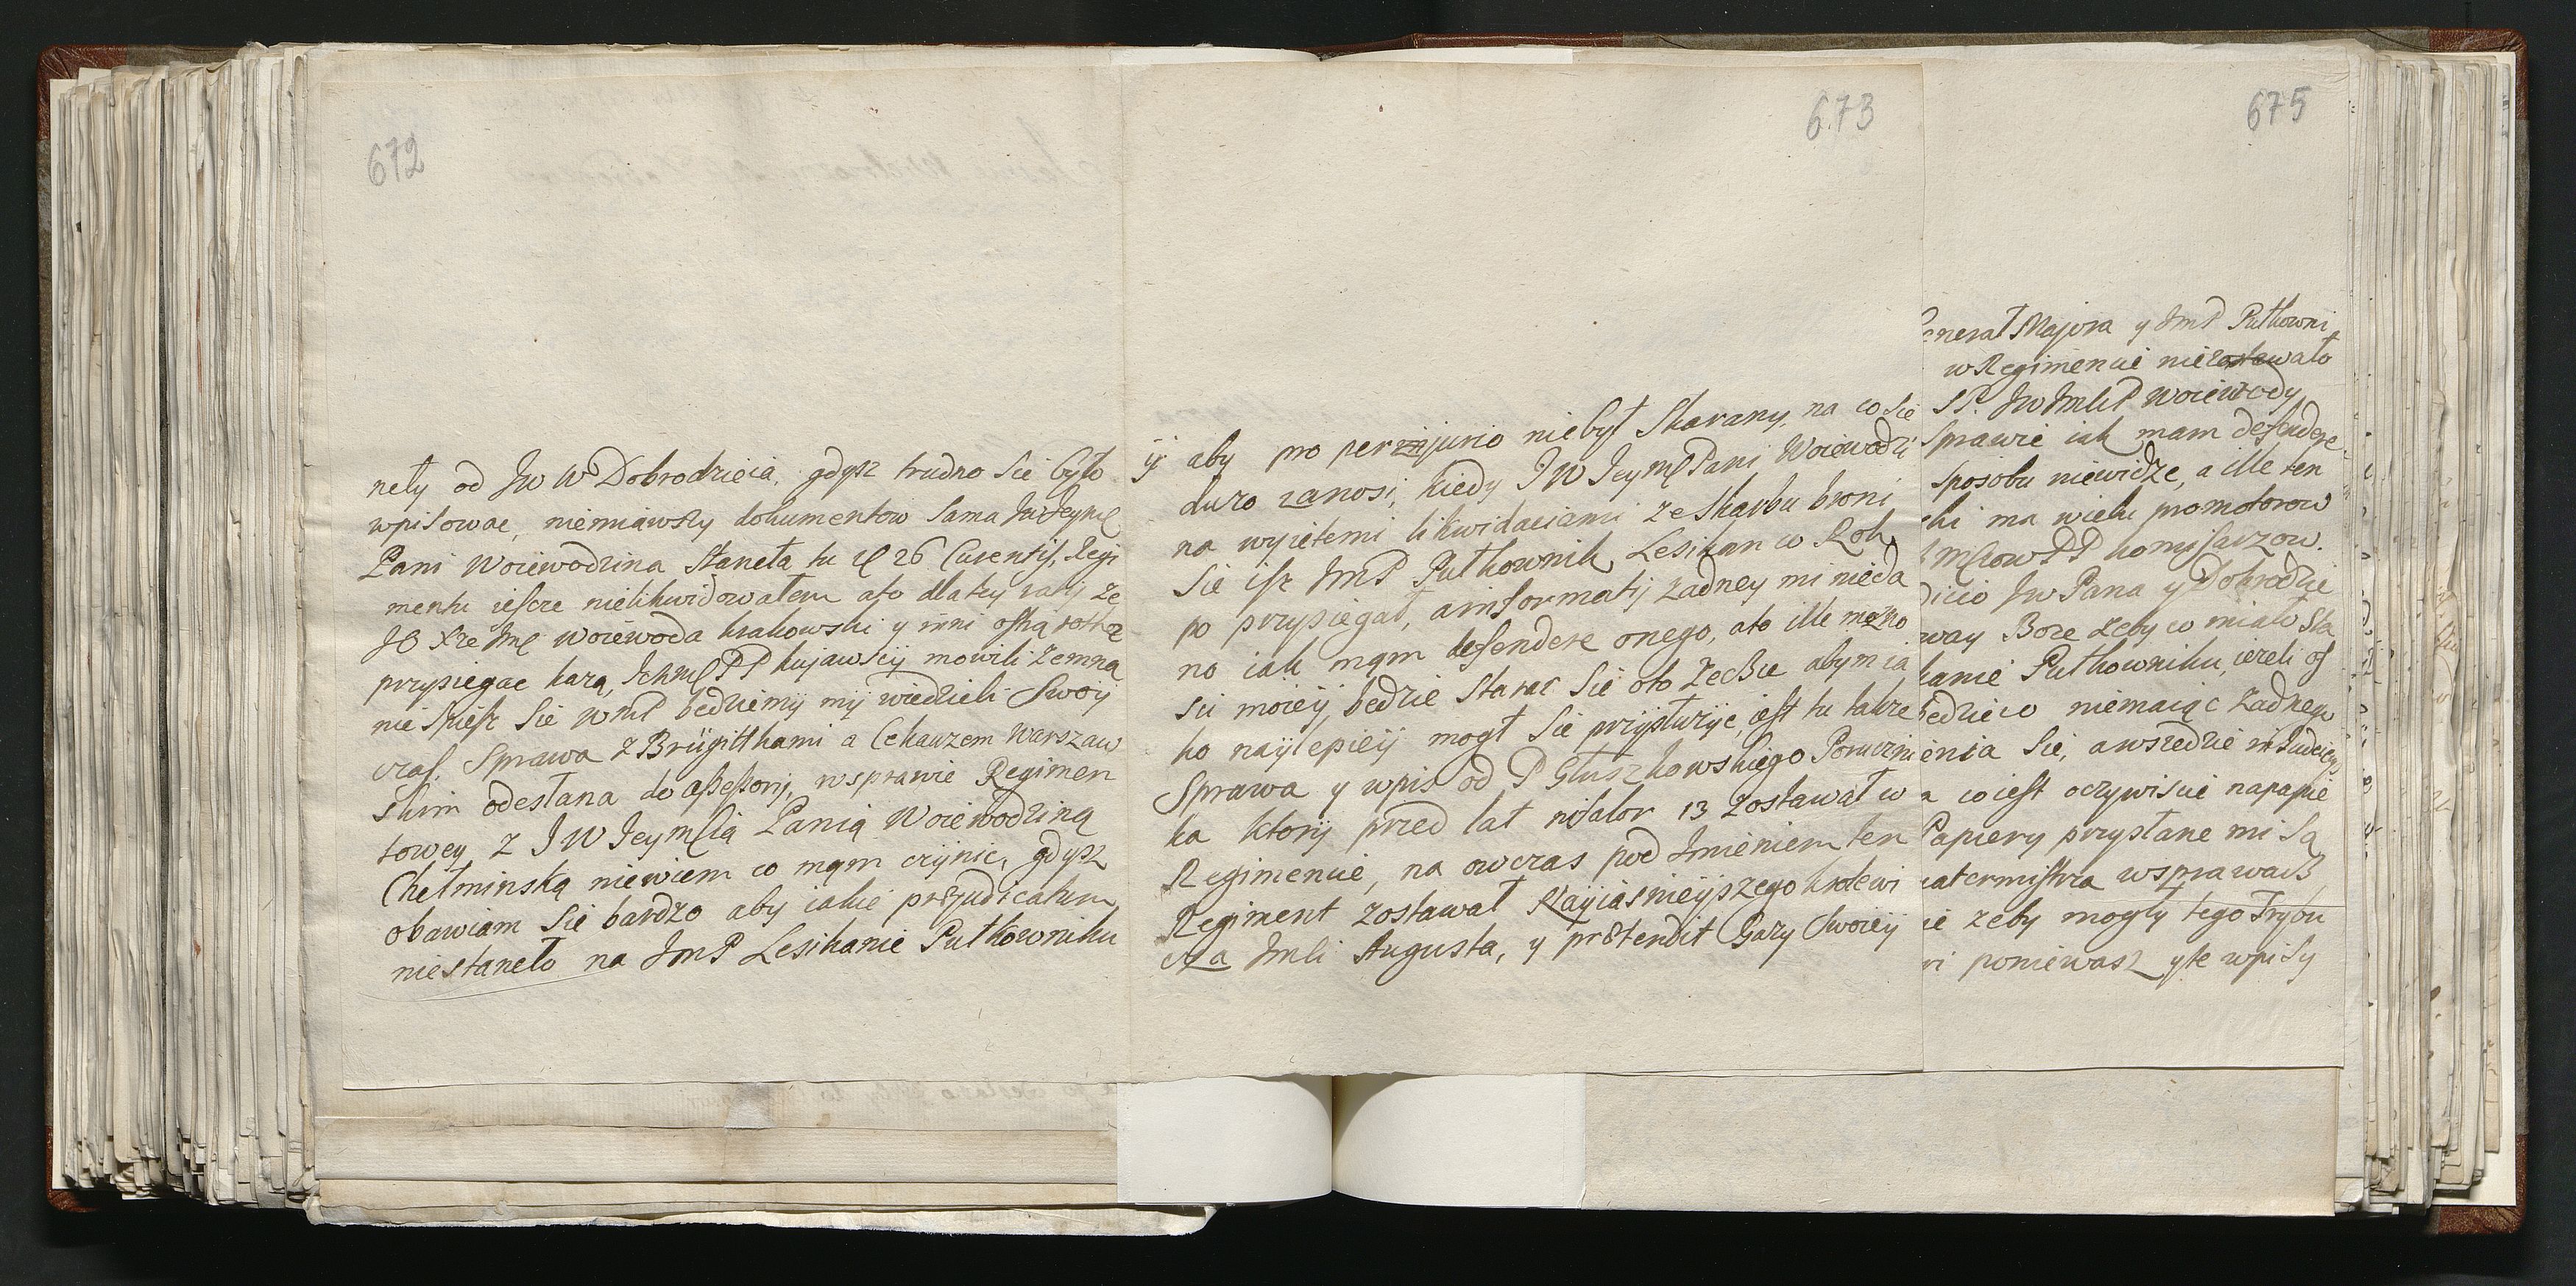 672
nety od JW WDobrodzieia, gdysz trudno sie było
wpisowac, niemiawszy dokumentow sama JwJeyme
Pani Woiewodzina stanela tu d 26 Curentis, Regi
mentu ieszcze nielikwidowałem ato dlatey ratij ze
JO Xze Jmc Woiewoda krakowski y inni ostrą rothe
przysiegac karą, Ichmc PP kujawscij mowili zemną
nie spiesz sie WmP bedziemij mij wiedzieli swoij
czas. Sprawa z Brügitthami a Cekauzem Warszaw
skim odesłana do assessorij, wsprawie Regimen
towey z JW Jeymscią Panią Woiewodziną
Chełminską niewiem co mam czijnic, gdysz
obawiam sie bardzo aby iakie prejudicatum
niestaneło na JmP Lesikanie Pułkowniku
673
ij aby pro perjurio niebył skarany, na co sie
duzo zanosi, kiedy JW Jeymc Pani Woiewodzi
na wyietemi likwidaciami ze skarbu broni
sie isz JmP Pułkownik Lesikan w Rok
po przysiegał, ainformatij zadney mi nieda
no iak mam defendere onego, ato ille mozno
sci moieij bedzie starac sie oto zechce abym ia
ko naijlepieij mogł sie prijsłuzijc, iest tu takze
Sprawa y wpis od P Głuszkowskiego Porucznni
ka ktorij przed lat 13 zostawał w
Regimencie, na owczas pod Jmieniem ten
Regiment zostawał Naijiasnieijszego krolewi
cza Jmci Augusta, y prætendit Gazy swoieij
675
enerał Majora y JmP Pułkowni
w Regimencie niezostawało
SP. JWJmciP Woiewody
sprawie iak mam defendere
sposobu niewidze, a ille ten
ski ma wielu promotorow
JmciowPP komissarzow.
dicio JwPana y Dobrodzie
way Boze zeby co miało sta
kanie Pułkowniku, iezeli os
bedzieco niemaiąc zadnego
enia sie, awszedzie in Judiciis
a coiest oczywiscie napapie
Papiery przysłane mi są
uatermistrza wsprawach
ie zeby mogły tego Trybu
wi poniewasz yte wpisy